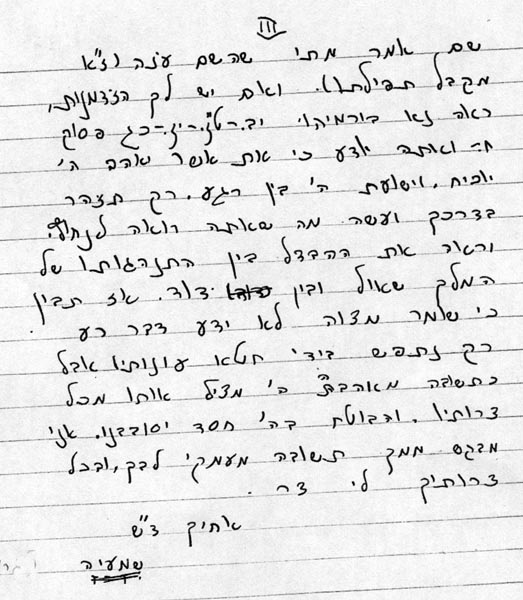 III
שם אמר מתי שהשם עונה (ז"א
מקבל תפילתו). ואם יש לך הזדמנות,
ראה נא בירמיהו יב.-טז.-יז.-כג פסוק
ח- ואתה יודע כי את אשר יאהב ה'
יוכיח. וישועת ה' כין רגע. רק תזהר
בדרכך ועשה מה שאתה רואה לנחוץ.
וראה את ההבדל בין התנהגותו של
המלך שאול ובין דוד. אז תבין
כי שומר מצוה לא ידע דבר רע
רק נתפש בידי חטא עונותיו אבל
כתשובה מאהבת ה' מציל אותו מכל
צרותיו. והבוטח בה' חסד יסובבנו. אני
מבקש ממך תשובה מעמקי לבך, ובכל
צרותיך לי צר.
אחיך ד"ש
שמעיה